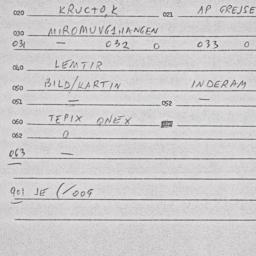 020 KRUCTO,K 021 AP GREJSE
030 MIROMUVG1HANGEN
031 — 032 0 033 0
040 LEMTIR
050 BILD/KARTIN INDERAM
051 — 052 —
060 TEPIX ONEX
062 0
063 —
901 JE (/009